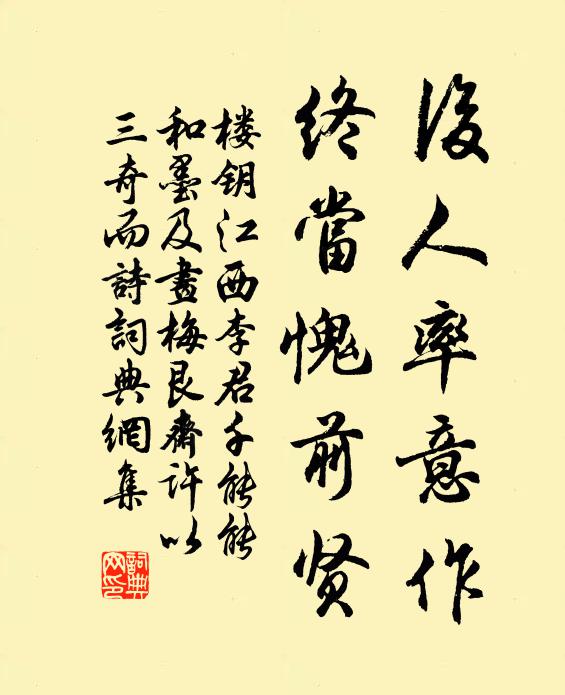 後人率意作
終當愧前贤
楼钥江西李君千能能
和墨及畫梅艮齋許以
三奇而詩詞典網集
詞典网印